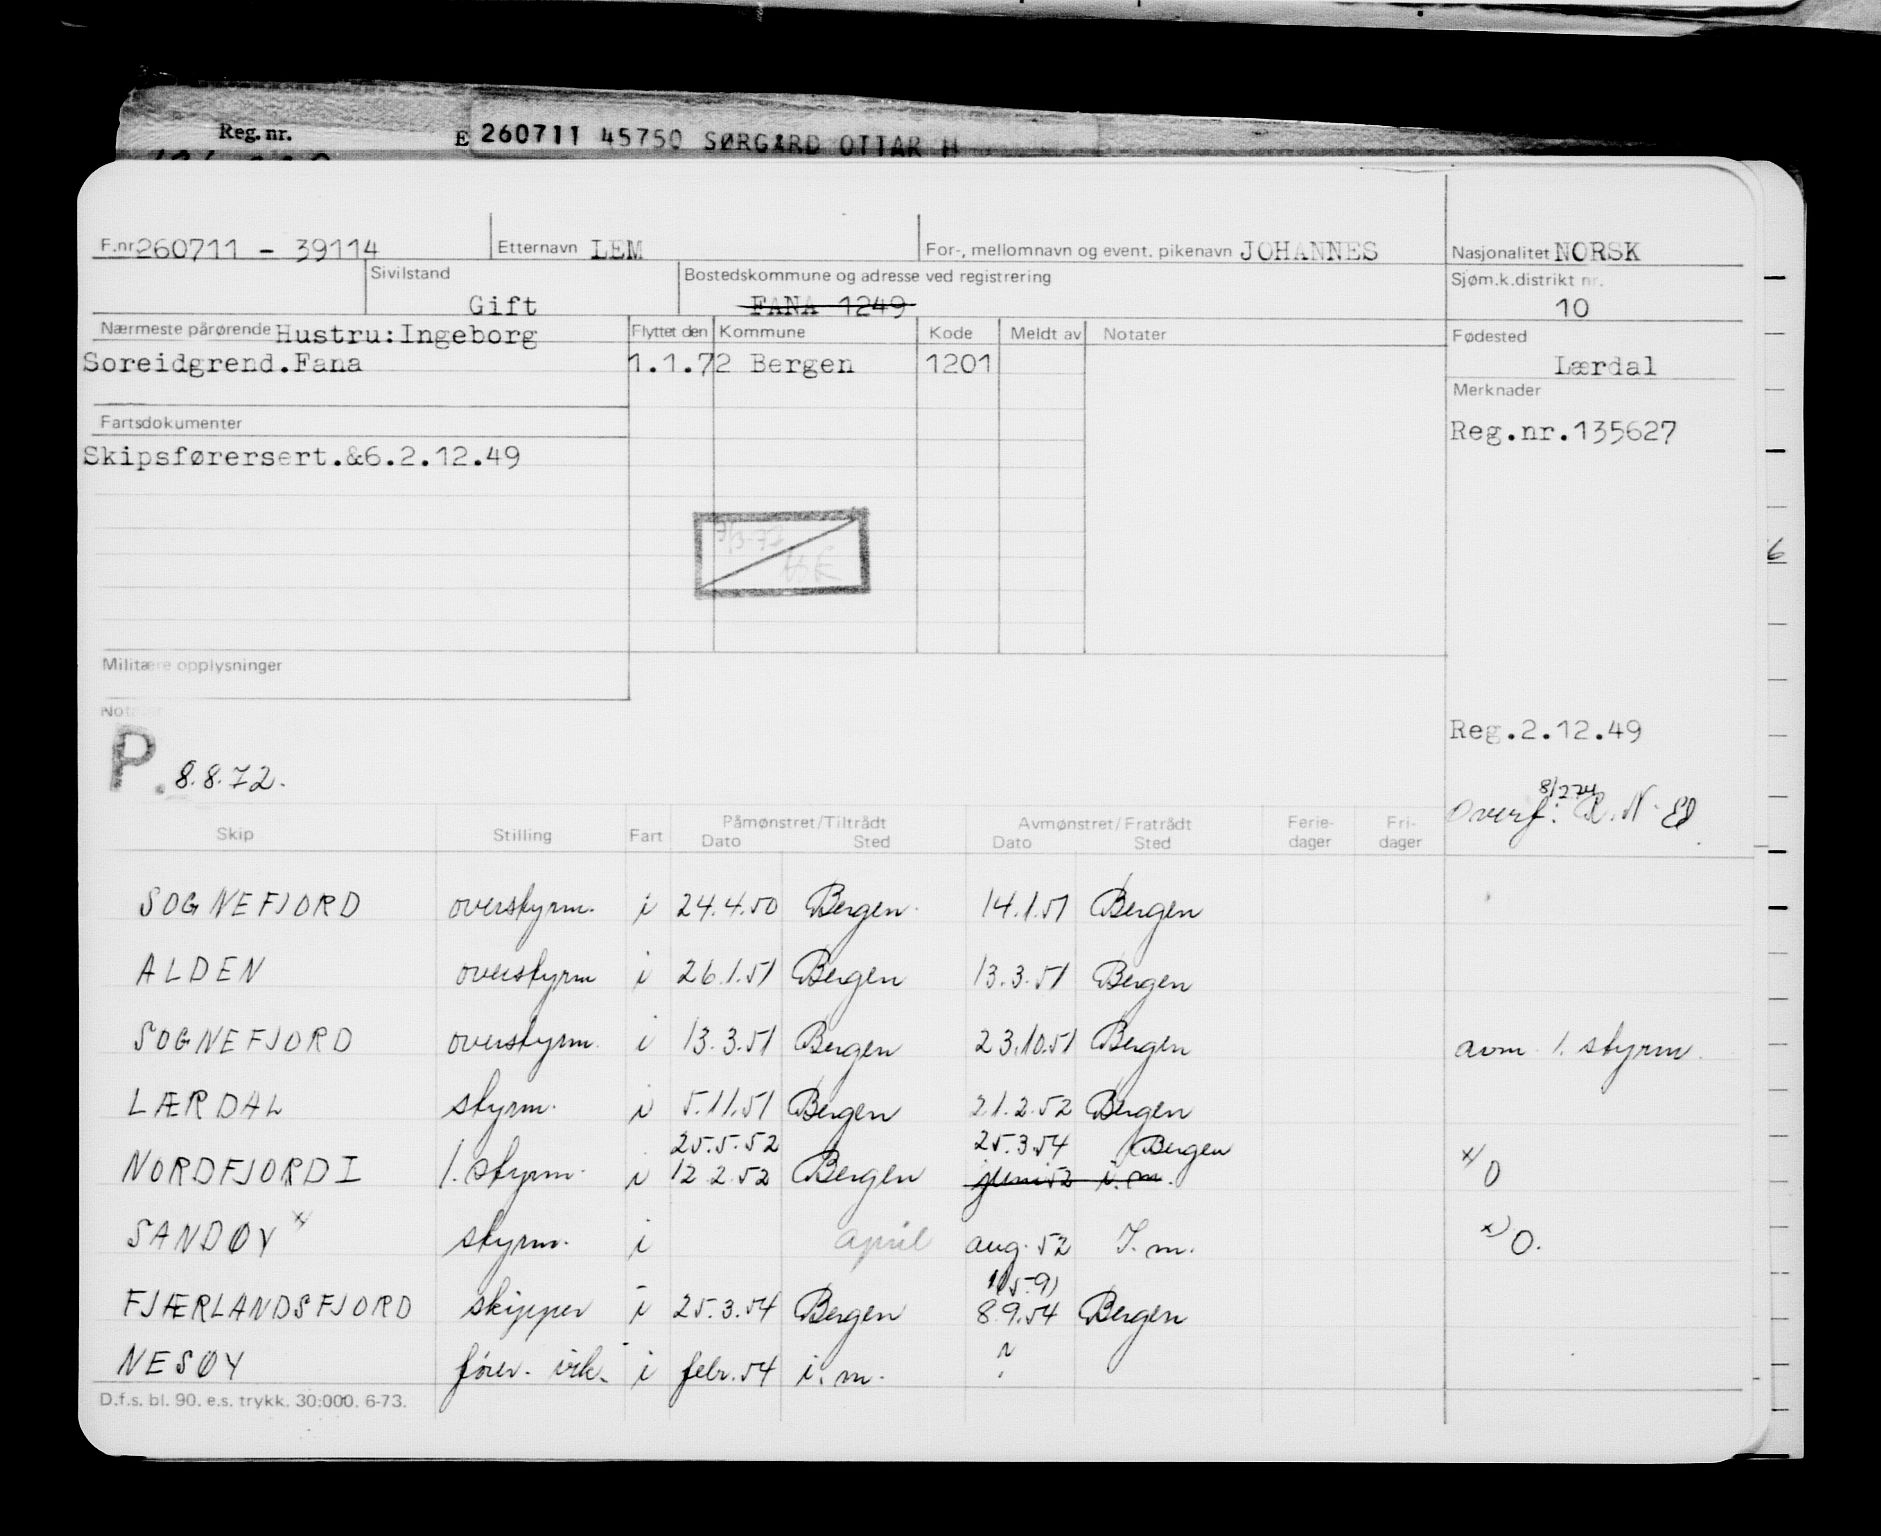 Reg. nr.
E 260711 45750 SØRGÅRD OTTAR H
F.nr. 260711 - 39114 Etternavn LEM For-, mellomnavn og event. pikenavn JOHANNES Nasjonalitet NORSK
Sivilstand Bostedskommune og adresse ved registrering Sjøm.k.distrikt nr.
Gift FANA 1249 10
Nærmeste pårørende Hustru:Ingeborg Flyttet den Kommune Kode Meldt av Notater Fødested
Soreidgrend.Fana 1.1.72 Bergen 1201 Lærdal
Merknader
Fartsdokumenter
Reg.nr.135627
Skipsførersert.&6.2.12.49
Militære opplysninger
Notater
Reg.2.12.49
P. 8.8.72.
Overf: R.N.
Skip Stilling Fart Påmønstret/Tiltrådt Avmønstret/Fratrådt Ferie- Fri-
Dato Sted Dato Sted dager dager
SOGNEFJORD overstyrm. i 24.4.50 Bergen 14.1.51 Bergen
ALDEN overstyrm i 26.1.51 Bergen 13.3.51 Bergen
SOGNEFJORD overstyrm. i 13.3.51 Bergen 23.10.51 Bergen avm 1. styrm.
LÆRDAL styrm. i 5.11.51 Bergen 21.2.52 Bergen
25.5.52 25.3.54 Bergen
NORDFJORD I 1. styrm. i 12.2.52 Bergen juni 52 i.m. x) O
SANDØY x) styrm. i april aug. 52 I.m. x) O.
FJÆRLANDSFJORD skipper i 25.3.54 Bergen 8.9.54 Bergen
NESØY fører. i febr. 54 i.m. ?
D.f.s. bl. 90. e.s. trykk. 30.000. 6-73.